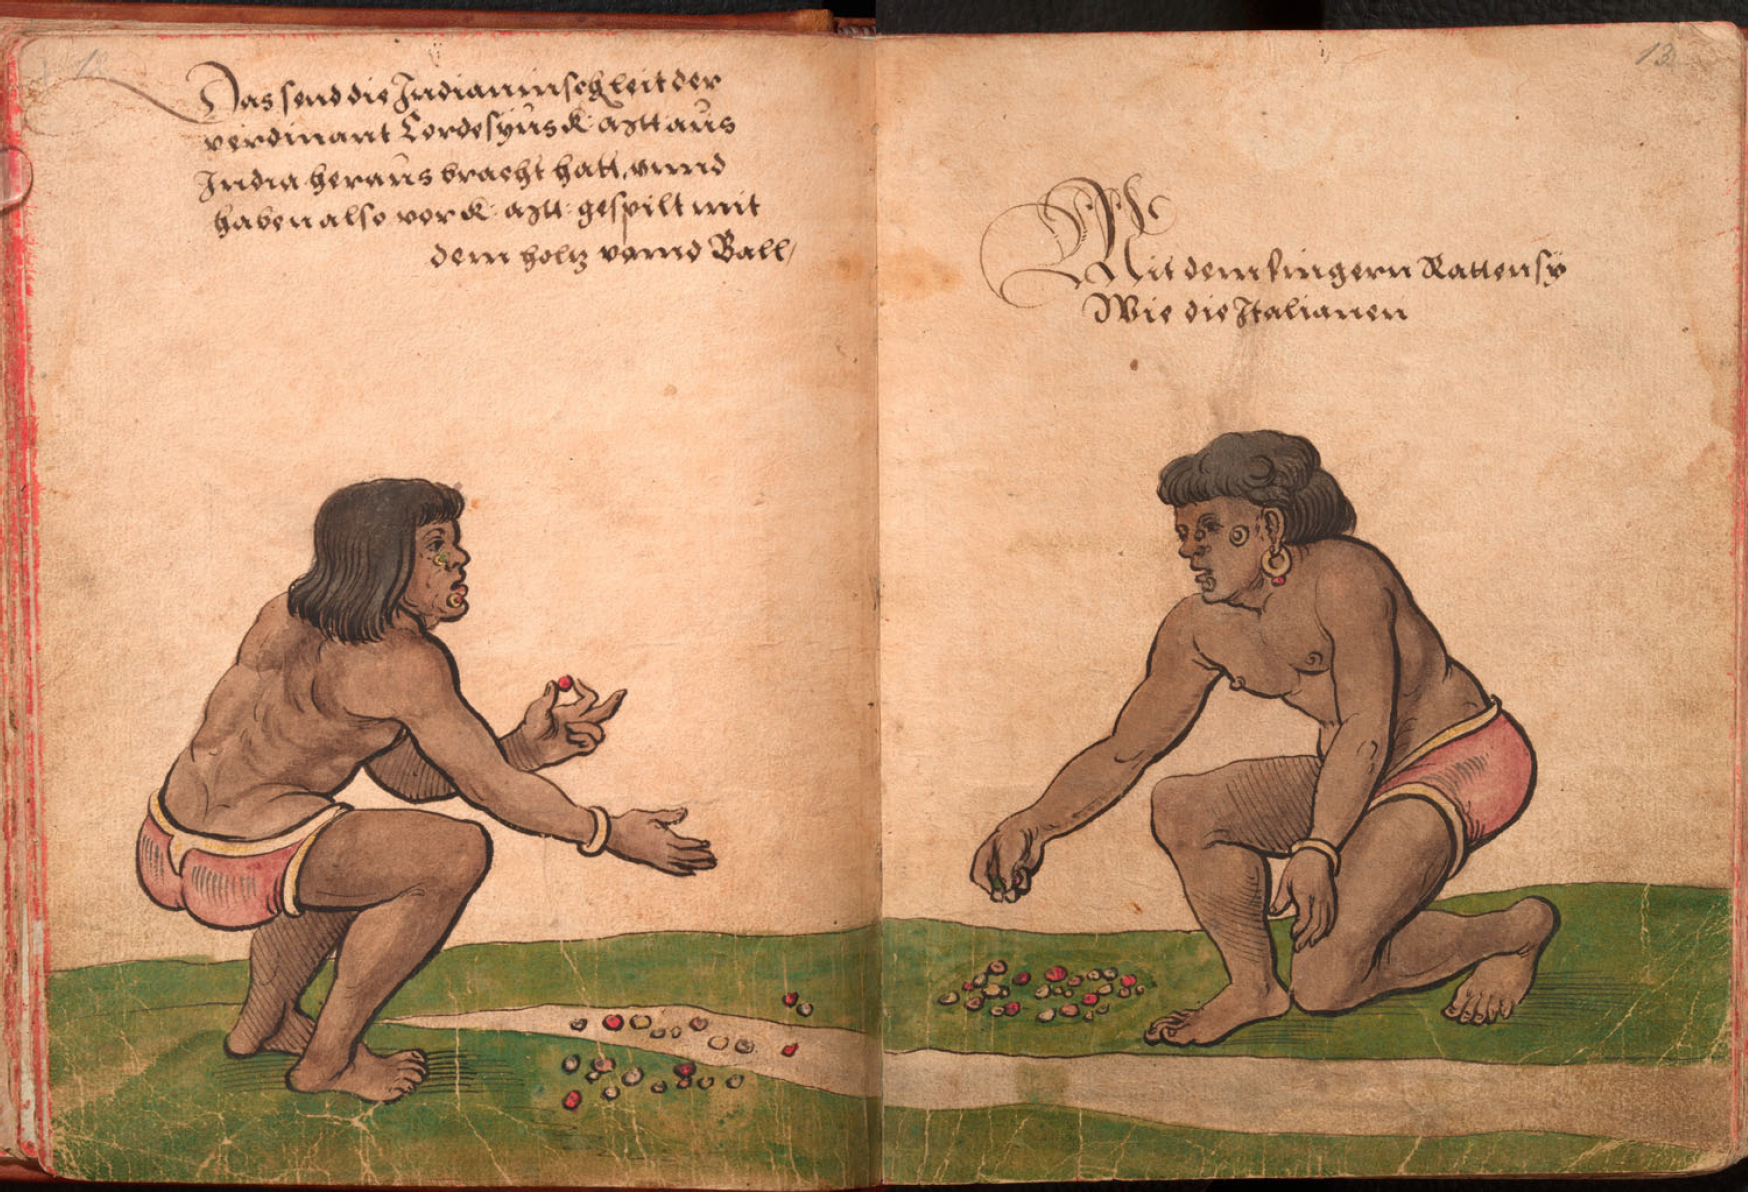 12
Das send die Indianinsch leit der
verdinant Cordesyus K: aytt aus
India heraus bracht hatt, vnnd
haben also vor K: aytt: gespilt mit
dem holtz vnnd Ball/
13
Mit dem fingern Rattensy
Wie die Italianen